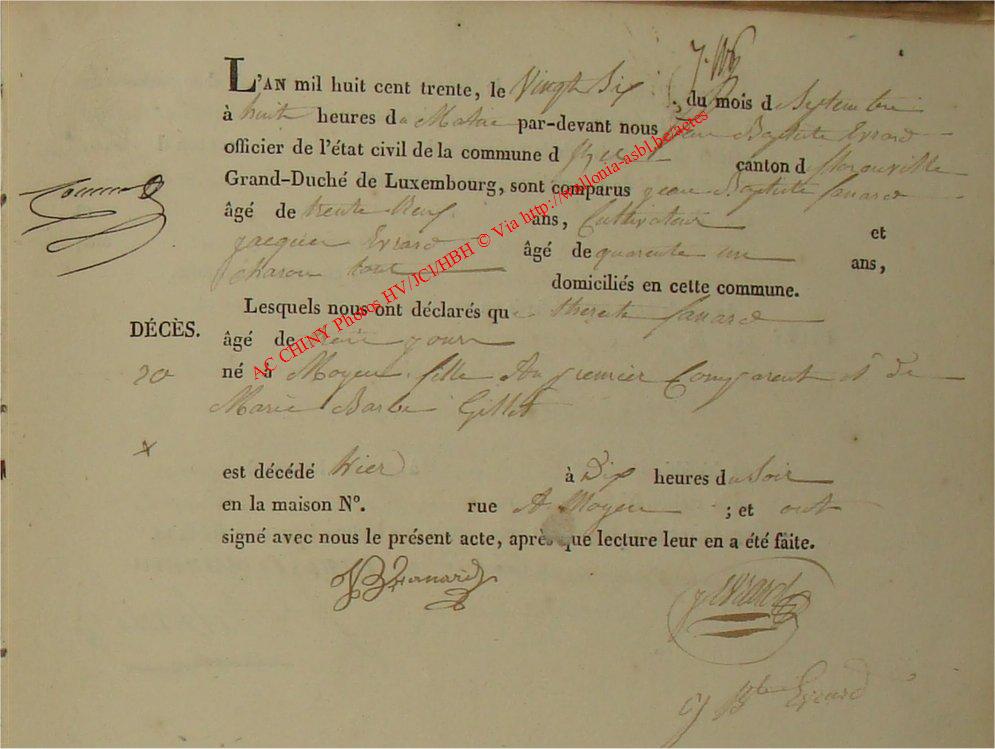 L'AN mil huit cent trente, le Vingt Six du mois d Septembre
à huit heures du Matin par-devant nous Jean Baptiste Evrard
officier de l'état civil de la commune d canton d
Grand-Duché de Luxembourg, sont comparus jean Baptiste
âgé de trente Neuf ans, Cultivateur et
jacques Evrard âgé de quarante un ans,
charon tout domiciliés en cette commune.
Lesquels nous ont déclarés que
DÉCÈS. âgé de jour
20 né à Moyen fille du premier Comparent et de
Marie Barbe Gillet
est décédé hier à Dix heures du Soir
en la maison N°. rue A Moyen ; et ont
signé avec nous le présent acte, après que lecture leur en a été faite.
JEvrard
J Bte Evrard
AC CHINY Photos HV/JCl/HBH © Via http://wallonia-asbl.be/actes